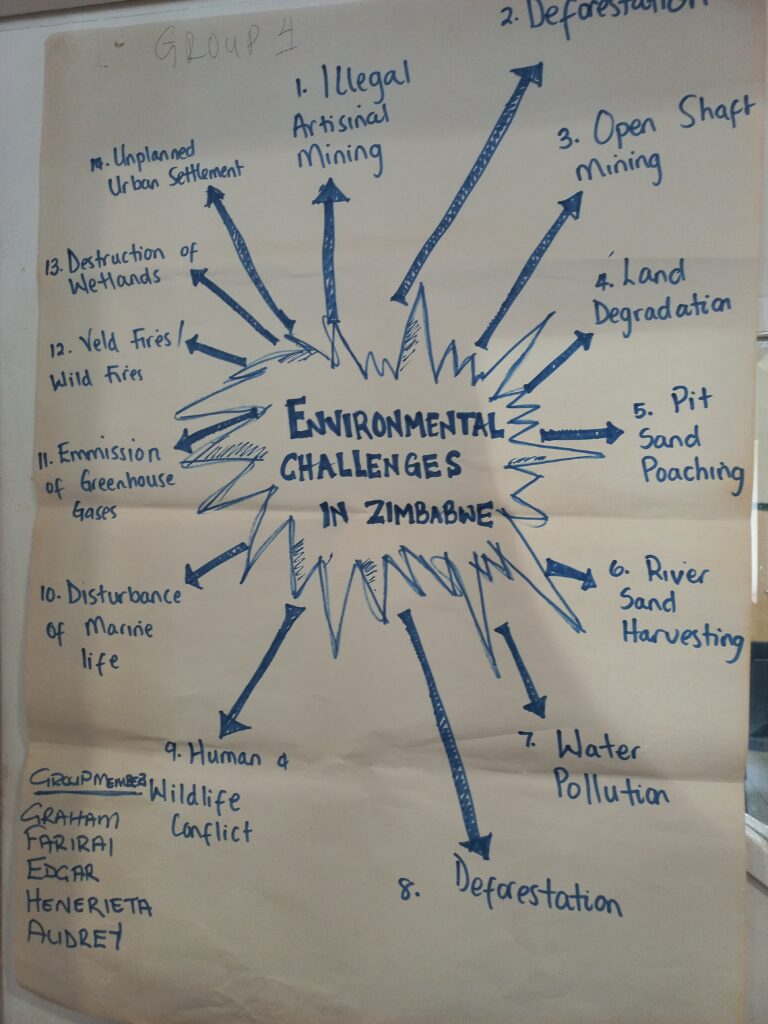 GROUP 1
ENVIRONMENTAL
CHALLENGES
IN ZIMBABWE
1. Illegal
Artisinal
Mining
2. Deforestation
3. Open Shaft
Mining
4. Land
Degradation
5. Pit
Sand
Poaching
6. River
Sand
Harvesting
7. Water
Pollution
8. Deforestation
9. Human &
Wildlife
Conflict
10. Disturbance
of Marine
life
11. Emmission
of Greenhouse
Gases
12. Veld Fires/
Wild Fires
13. Destruction of
Wetlands
14. Unplanned
Urban Settlement
GROUP MEMBER
GRAHAM
FARIRAI
EDGAR
HENERIETA
AUDREY